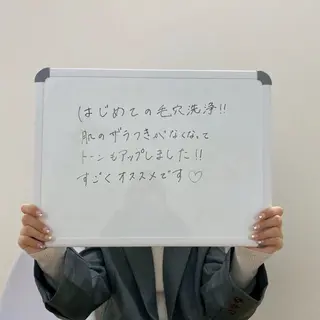 はじめての毛穴洗浄!!
肌のザラつきがなくなって
トーンもアップしました!!
すごくオススメです♡